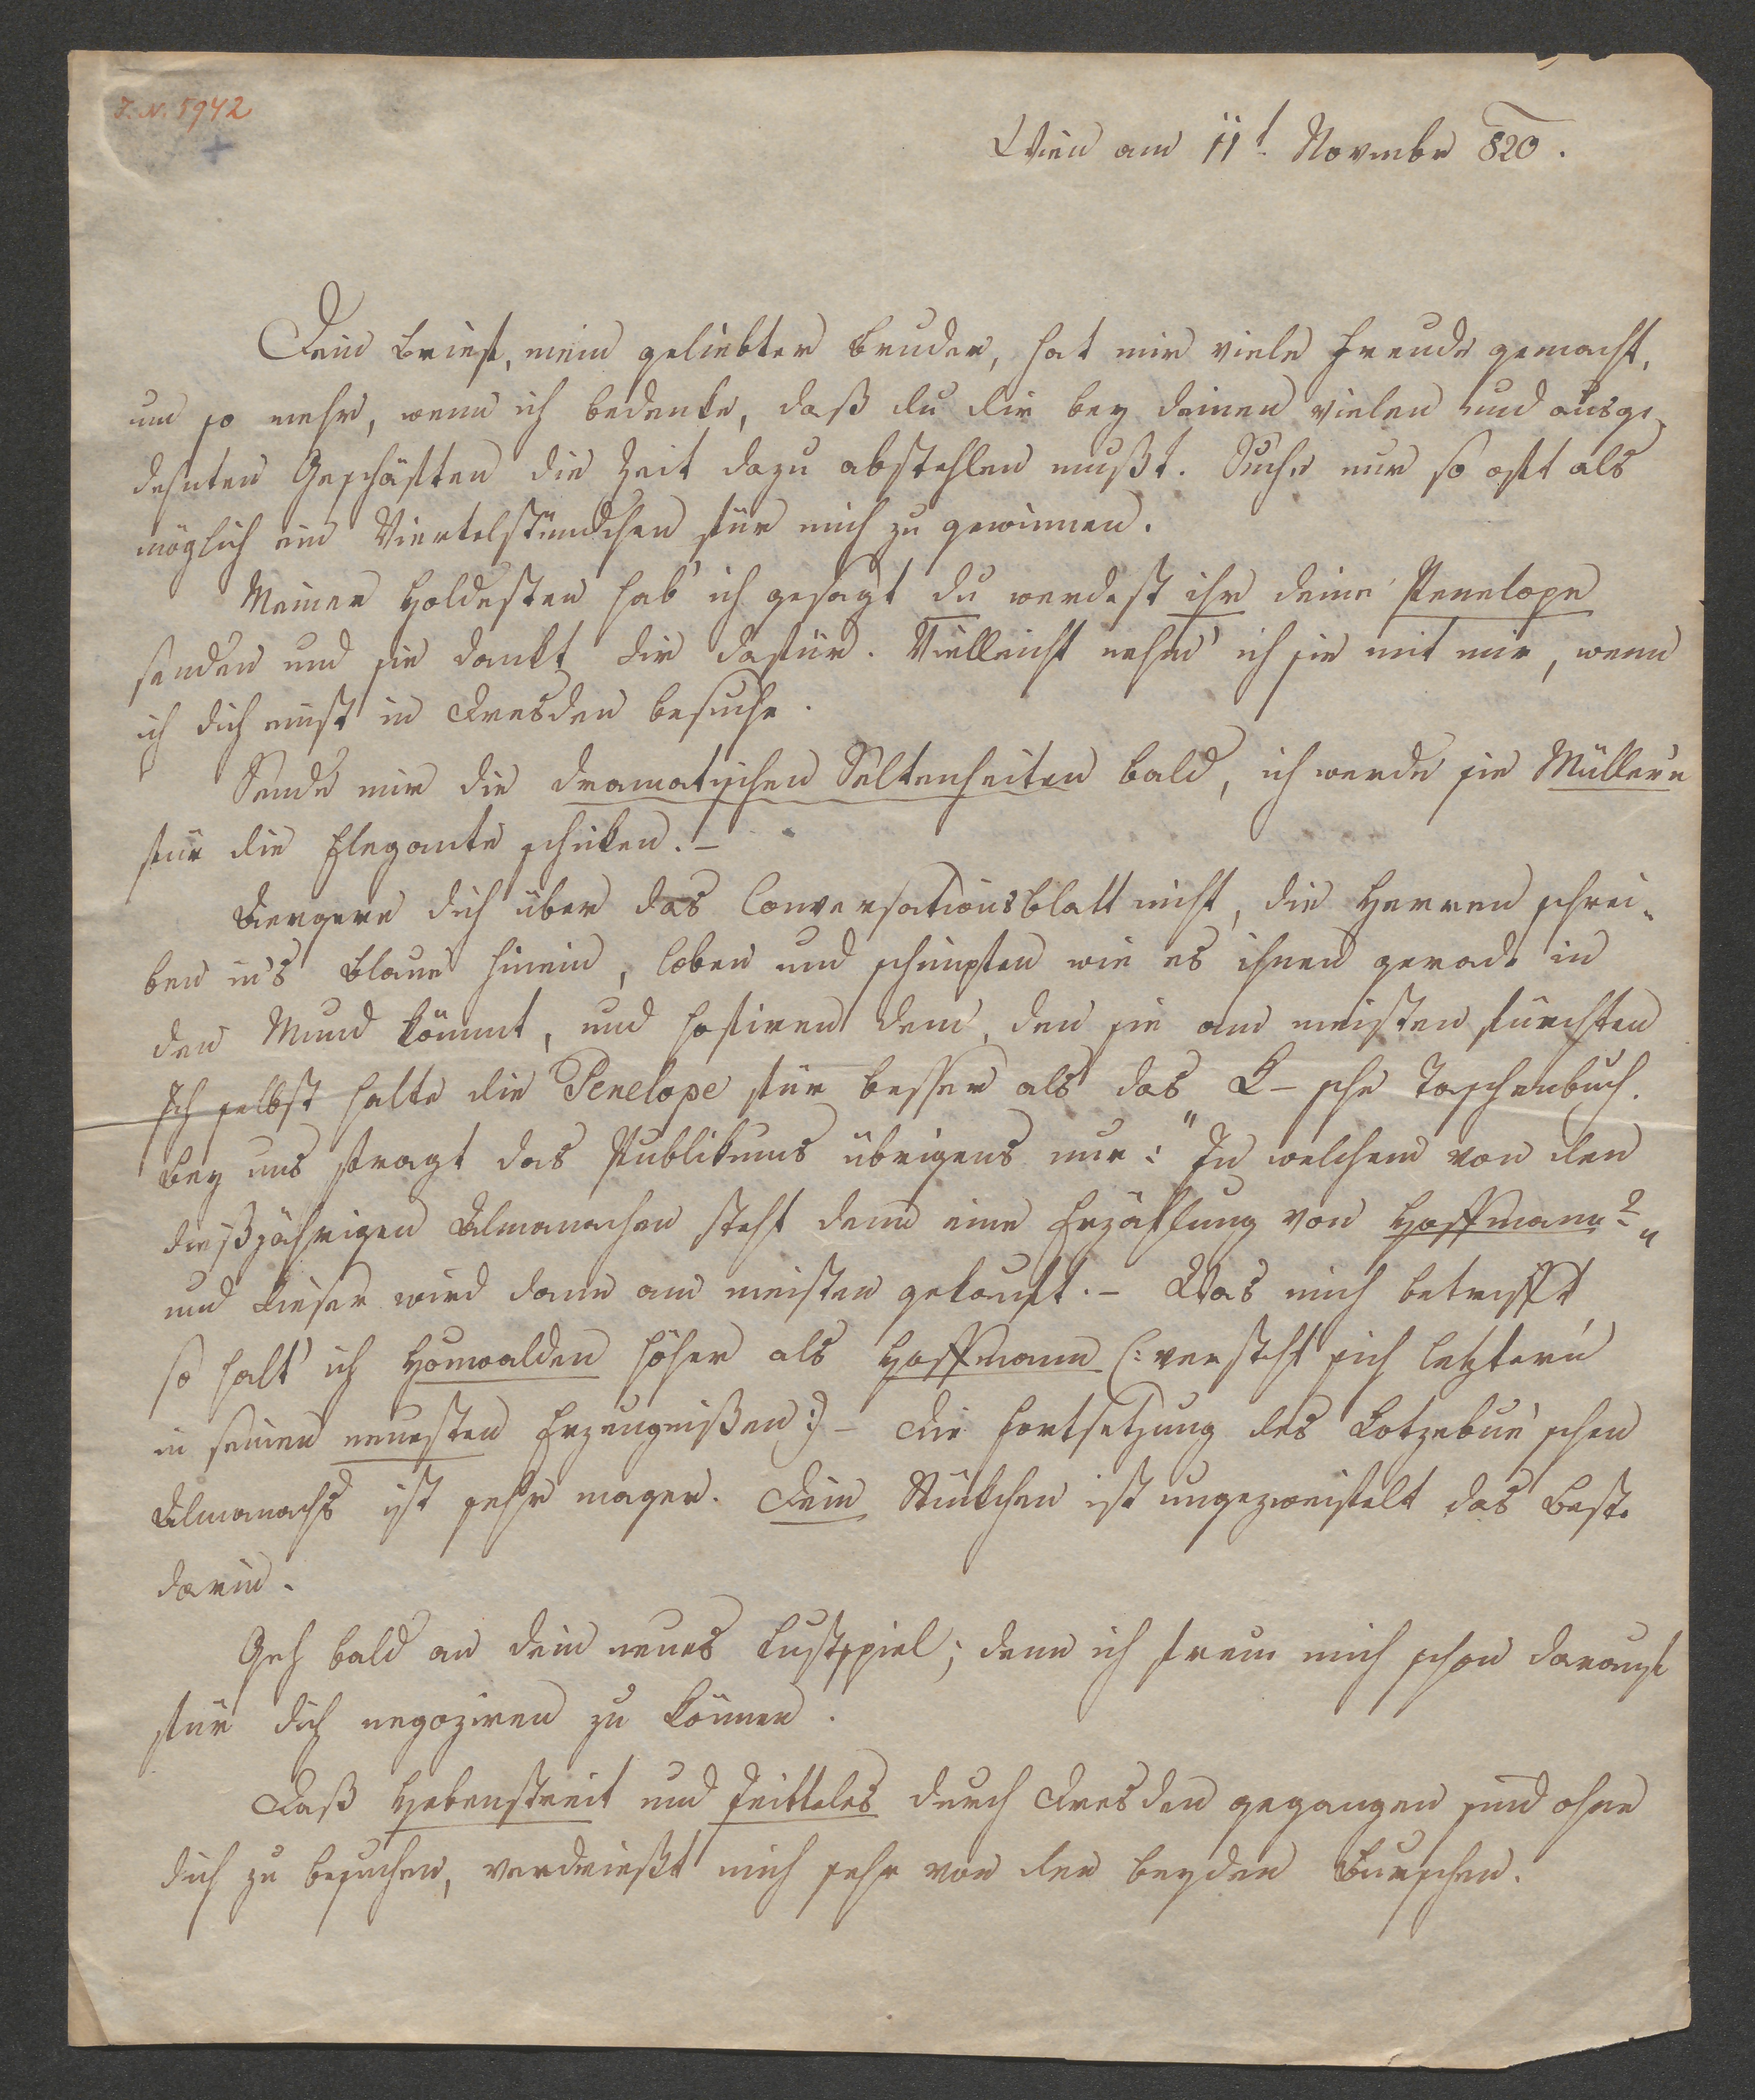 J. N. 5942
Wien am 11t. Novmbr 820.
Dein Brief, mein geliebter Bruder, hat mir viele Freude gemacht,
um so mehr, wenn ich bedenke, daß du dir bey deinen vielen und ausge-
dehnten Geschäften die Zeit dazu abstehlen mußt. Suche nur so oft als
möglich ein Viertelstündchen für mich zu gewinnen.
Meiner Holdesten hab' ich gesagt du werdest ihr deine Penelope
senden und sie dankt dir dafür. Vielleicht nehm' ich sie mit mir, wenn
ich dich einst in Dresden besuche.
Sende mir die dramatischen Seltenheiten bald, ich werde sie Müllern
für die Elegante schicken. –
Aergere dich über das Conversationsblatt nicht, die Herren schrei-
ben in's Blaue hinein, loben und schimpfen wie es ihnen gerade in
den Mund kömmt, und hofiren dem, den sie am meisten fürchten
Ich selbst halte die Penelope für besser als das K–sche Taschenbuch.
Bey uns fragt das Publikums übrigens nur: "In welchem von den
dießjährigen Almanachen steht denn eine Erzählung von Hoffmann?"
und dieser wird dann am meisten gekauft. – Was mich betrifft
so halt' ich Houwalden höher als Hoffmann (: versteht sich letztern
in seinen neuesten Erzeugnißen :) – Die Fortsetzung des Kotzebue'schen
Almanachs ist sehr mager. Dein Stückchen ist ungezweifelt das Beste
darin.
Geh bald an dein neues Lustspiel; denn ich freue mich schon darauf
für dich negoziren zu können.
Daß Hebenstreit und Jeitteles durch Dresden gegangen sind ohne
dich zu besuchen, verdrießt mich sehr von den beyden Burschen.